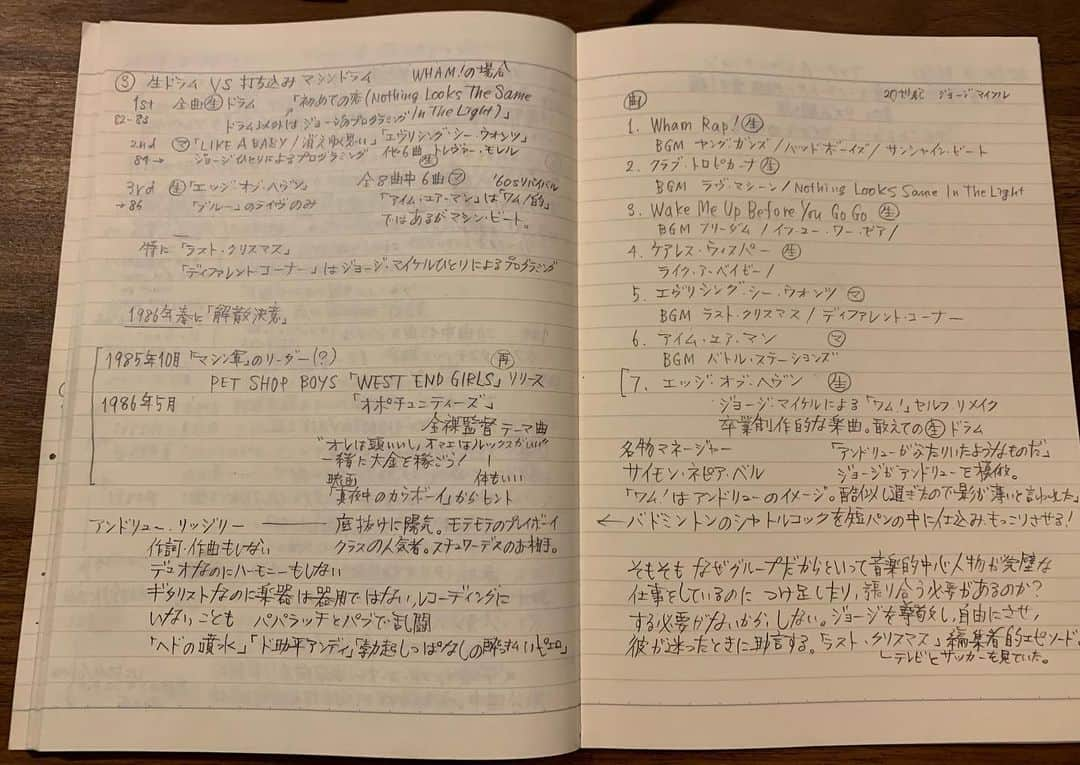 ③ 生ドラム VS 打ち込み マシンドラム WHAM!の場合
1st 全曲㊤ドラム 「初めての恋(Nothing Looks The Same In The Light)」
82-83 ドラム以外はジョージのプログラミング
2nd マ「LIKE A BABY/消えゆく思い」「エヴリシング・シー・ウォンツ」
84→ ジョージひとりによるプログラミング 他6曲 生 トレヴァー・モレル
3rd 生「エッジ・オブ・ヘヴン」 全8曲中6曲マ '60sリバイバル
→86 「ブルー」のライヴのみ 「アイム・ユア・マン」は「ワム!的」
ではあるがマシン・ビート。
特に「ラスト・クリスマス」
「ディファレント・コーナー」はジョージ・マイケルひとりによるプログラミング
1986年春に「解散決意」
1985年10月「マシン軍」のリーダー(?) 再
PET SHOP BOYS「WEST END GIRLS」リリース
1986年5月 「オポチュニティーズ」
全裸監督 テーマ曲
"オレは頭いいし、オマエはルックスがいい"
一緒に大金を稼ごう! 体もいい
映画
「真夜中のカウボーイ」からヒント
アンドリュー・リッジリー ― 底抜けに陽気。モテモテのプレイボーイ
作詞・作曲もしない クラスの人気者。スチュワーデスのお相手。
デュオなのにハーモニーもしない
ギタリストなのに楽器は器用ではない、レコーディングに
いないことも パパラッチとパブで乱闘
「ヘドの噴水」「ド助平アンディ」「勃起しっぱなしの酔っ払いピエロ」
曲 20151225 ジョージ マイケル
1. Wham Rap! 生
BGM ヤング・ガンズ/バッド・ボーイズ/サンシャイン・ビート
2. クラブ・トロピカーナ 生
BGM ラヴ・マシーン/Nothing Looks Same In The Light
3. Wake Me Up Before You Go Go 生
BGM フリーダム/イフ・ユー・ワー・ゼア/
4. ケアレス・ウィスパー 生
ライク・ア・ベイビー/
5. エヴリシング・シー・ウォンツ マ
BGM ラスト・クリスマス/ディファレント・コーナー
6. アイム・ユア・マン マ
BGM バトル・ステーションズ
7. エッジ・オブ・ヘヴン 生
ジョージ・マイケルによる「ワム!」セルフ・リメイク
卒業制作的な楽曲。敢えての生ドラム
名物マネージャー 「アンドリューがふたりいたようなものだ」
サイモン・ネピア・ベル ジョージがアンドリューを模倣。
「ワム!はアンドリューのイメージ。酷似し過ぎたので影が薄いと言われた」
←バドミントンのシャトルコックを短パンの中に仕込み、もっこりさせる!
そもそも なぜグループだからといって音楽的中心人物が完璧な
仕事をしているのに つけ足したり、張り合う必要があるのか?
する必要がないから、しない。ジョージを尊敬し、自由にさせ、
彼が迷ったときに助言する。「ラスト・クリスマス」編集者的エピソード。
テレビとサッカーを見ていた。